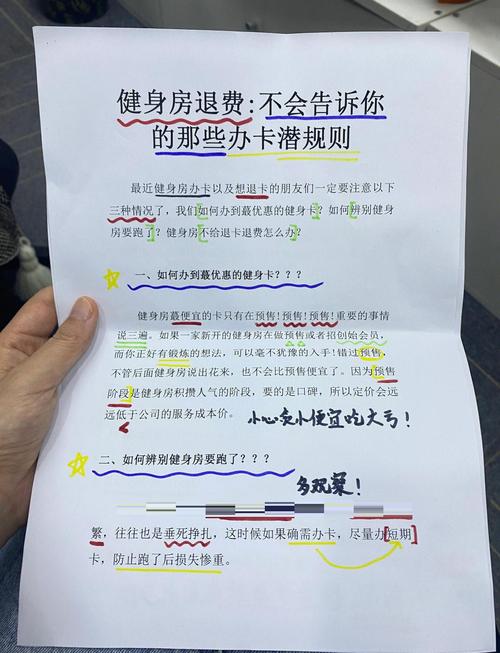 健身房退费:不会告诉你
的那些办卡潜规则
最近健身房办卡以及想退卡的朋友们一定要注意以下
三种情况了，我们如何办到最优惠的健身卡？如何辨别健身
房要跑了？健身房不给退卡退费怎么办？
一、如何办到蕞优惠的健身卡？？？
健身房蕞便宜的卡只有在预售！预售！预售！重要的事情
说三遍。如果一家新开的健身房在做预售或者招创始会员，
而你正好有锻炼的想法，可以毫不犹豫的入手！错过预售，
不管后面健身房说出花来，也不会比预售便宜了。因为预售
阶段是健身房积攒人气的阶段，要的是口碑，所以定价会远
远低于公司的服务成本价。
小心贪小便宜吃大亏！
二、如何辨别健身房要跑了？？？
多观察！
繁，往往也是垂死挣扎，这时候如果确需办卡，尽量办短期
卡，防止跑了后损失惨重。